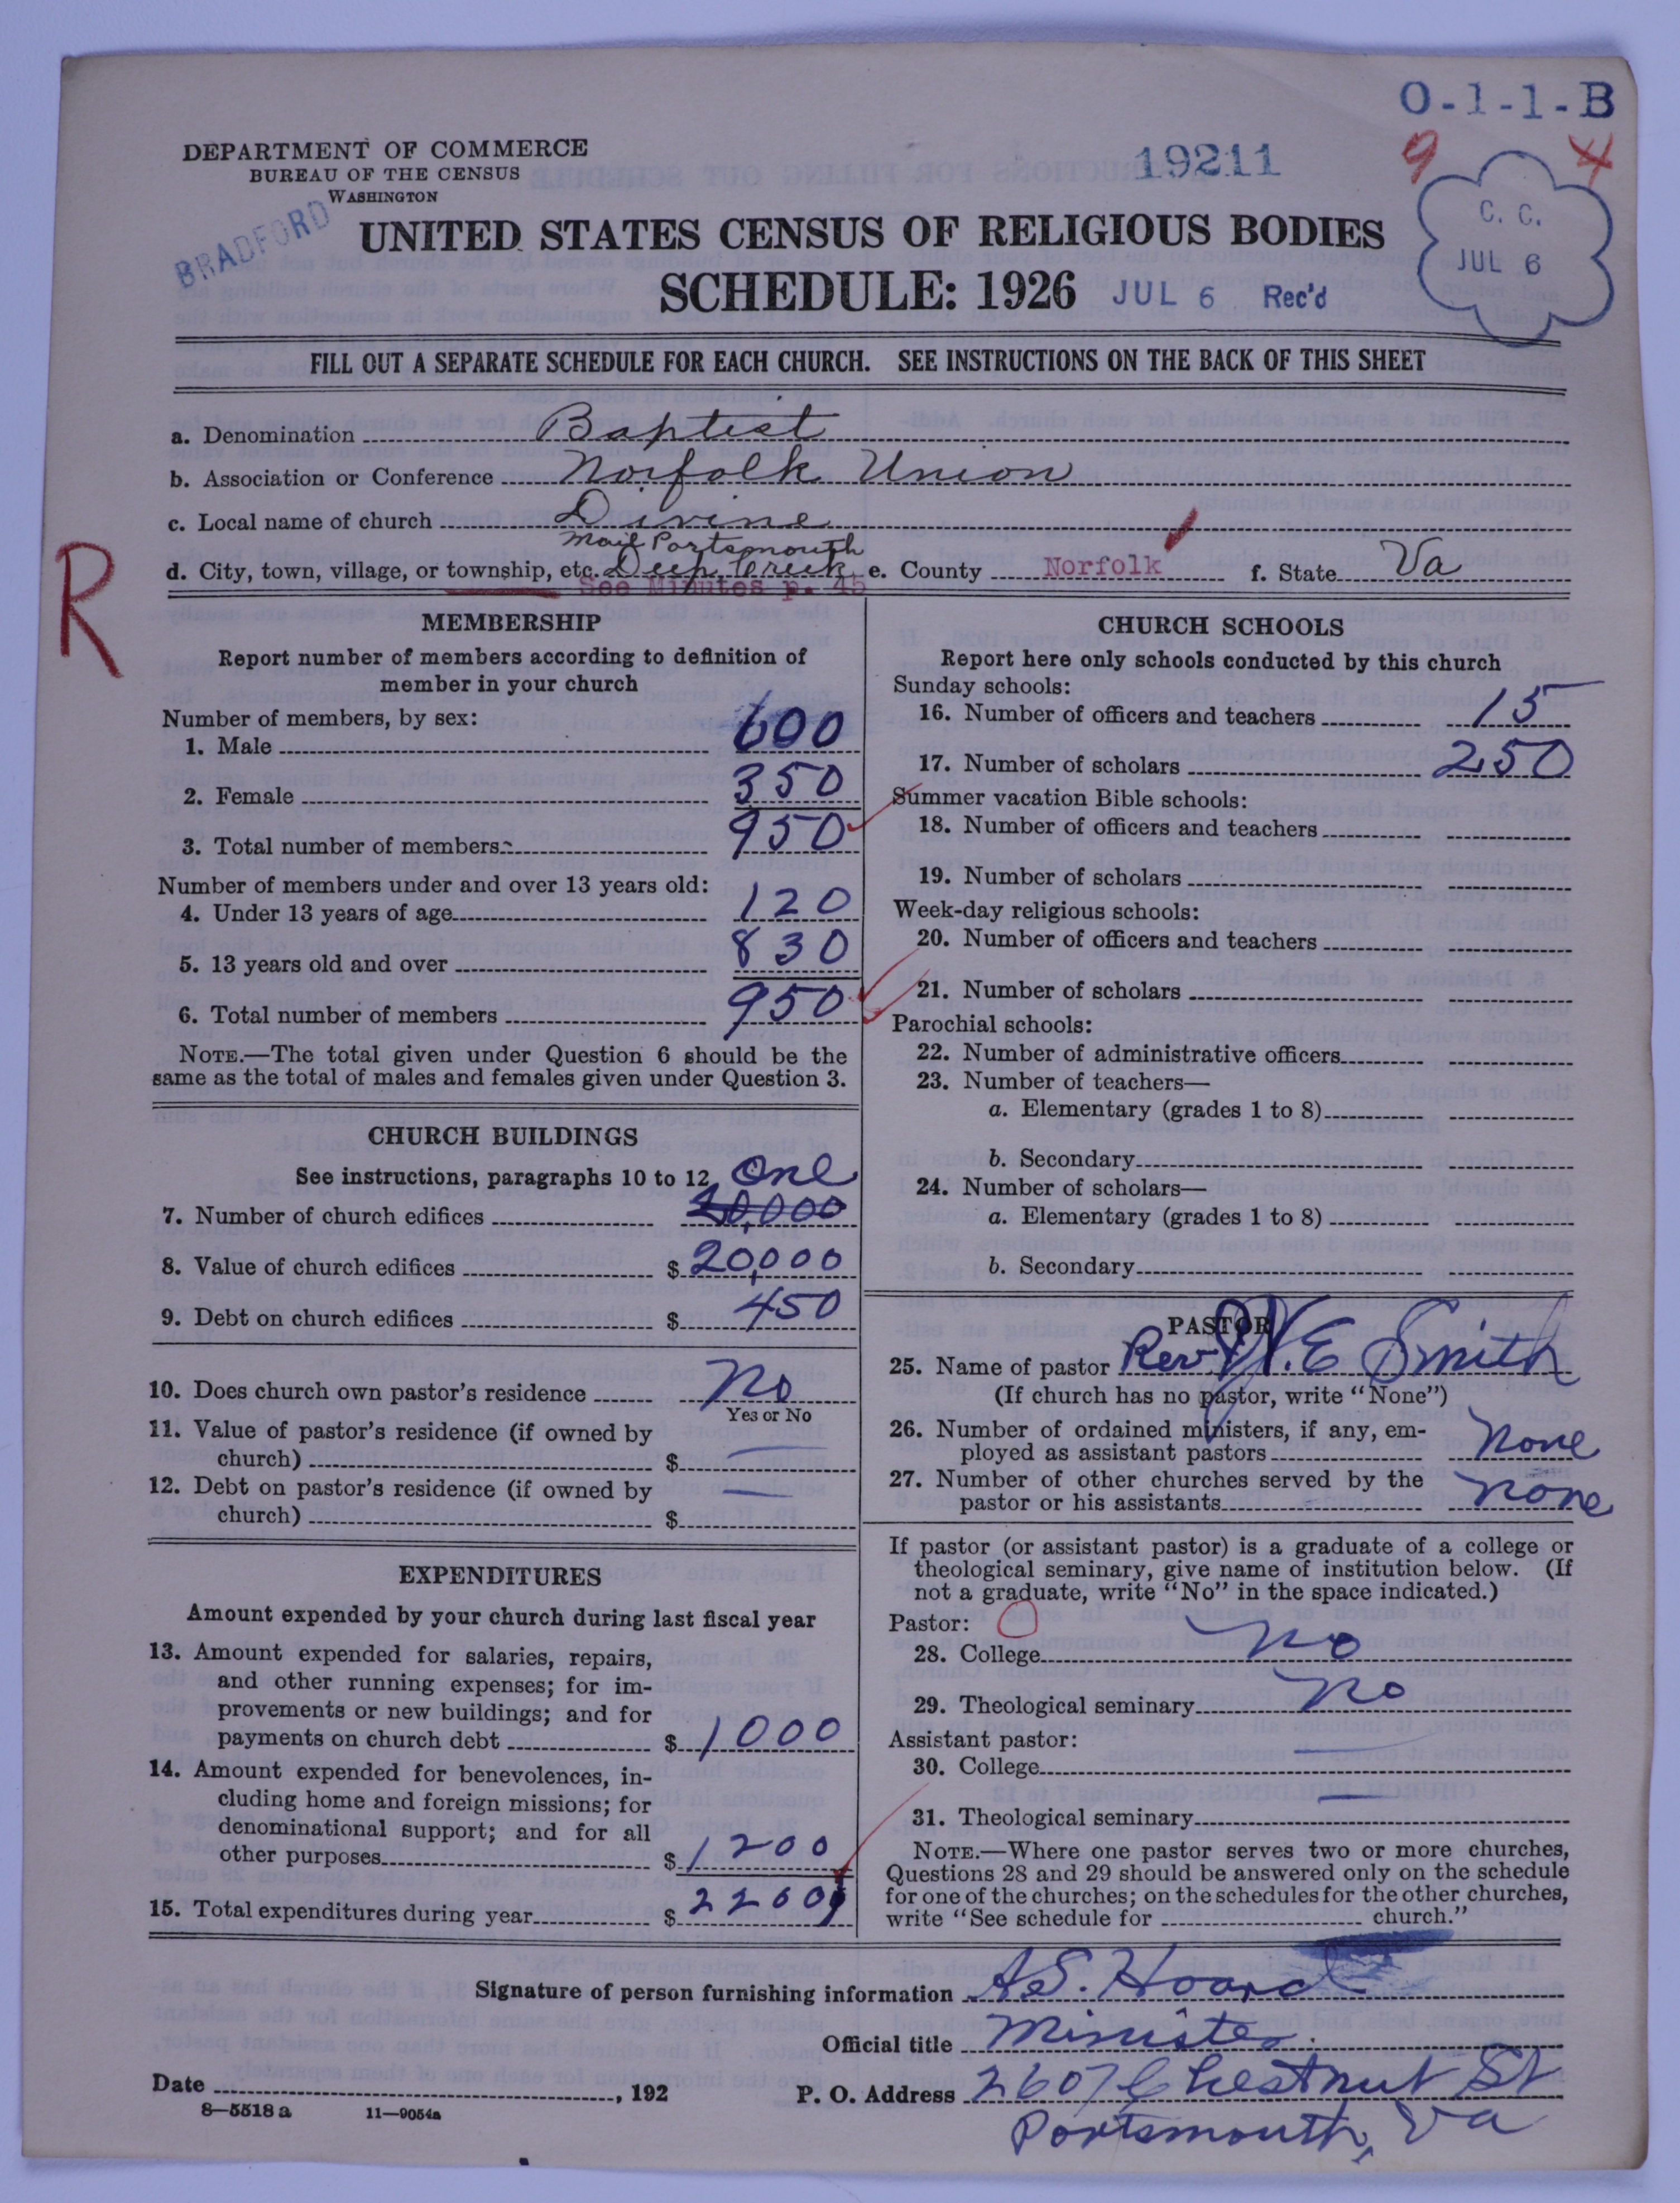 O-1-1-B
9 4
DEPARTMENT OF COMMERCE
BUREAU OF THE CENSUS
WASHINGTON
19211
C. C.
JUL 6
BRADFORD
UNITED STATES CENSUS OF RELIGIOUS BODIES
SCHEDULE: 1926 JUL 6 Rec'd
FILL OUT A SEPARATE SCHEDULE FOR EACH CHURCH. SEE INSTRUCTIONS ON THE BACK OF THIS SHEET
a. Denomination Baptist
b. Association or Conference Norfolk Union
c. Local name of church Divine
Mail Portsmouth
d. City, town, village, or township, etc. Deep Creek e. County Norfolk f. State Va
See Minutes p. 45
R
MEMBERSHIP
Report number of members according to definition of
member in your church
Number of members, by sex:
1. Male 600
2. Female 350
3. Total number of members 950
Number of members under and over 13 years old:
4. Under 13 years of age 120
5. 13 years old and over 830
6. Total number of members 950
NOTE.—The total given under Question 6 should be the
same as the total of males and females given under Question 3.
CHURCH BUILDINGS
See instructions, paragraphs 10 to 12 One
7. Number of church edifices 20,000
8. Value of church edifices $ 20,000
9. Debt on church edifices $ 450
10. Does church own pastor's residence No
Yes or No
11. Value of pastor's residence (if owned by
church) $ —
12. Debt on pastor's residence (if owned by
church) $ —
EXPENDITURES
Amount expended by your church during last fiscal year
13. Amount expended for salaries, repairs,
and other running expenses; for im-
provements or new buildings; and for
payments on church debt $ 1000
14. Amount expended for benevolences, in-
cluding home and foreign missions; for
denominational support; and for all
other purposes $ 1200
15. Total expenditures during year $ 2200
CHURCH SCHOOLS
Report here only schools conducted by this church
Sunday schools:
16. Number of officers and teachers 15
17. Number of scholars 250
Summer vacation Bible schools:
18. Number of officers and teachers
19. Number of scholars
Week-day religious schools:
20. Number of officers and teachers
21. Number of scholars
Parochial schools:
22. Number of administrative officers
23. Number of teachers—
a. Elementary (grades 1 to 8)
b. Secondary
24. Number of scholars—
a. Elementary (grades 1 to 8)
b. Secondary
PASTOR
25. Name of pastor Rev. J. W. E Smith
(If church has no pastor, write "None")
26. Number of ordained ministers, if any, em-
ployed as assistant pastors None
27. Number of other churches served by the
pastor or his assistants none
If pastor (or assistant pastor) is a graduate of a college or
theological seminary, give name of institution below. (If
not a graduate, write "No" in the space indicated.)
Pastor:
28. College No
29. Theological seminary No
Assistant pastor:
30. College —
31. Theological seminary —
NOTE.—Where one pastor serves two or more churches,
Questions 28 and 29 should be answered only on the schedule
for one of the churches; on the schedules for the other churches,
write "See schedule for church."
Signature of person furnishing information A.S. Hoard
Official title Minister
Date , 192 P. O. Address 2607 Chestnut St
8—5518 a 11—9054a
Portsmouth, Va